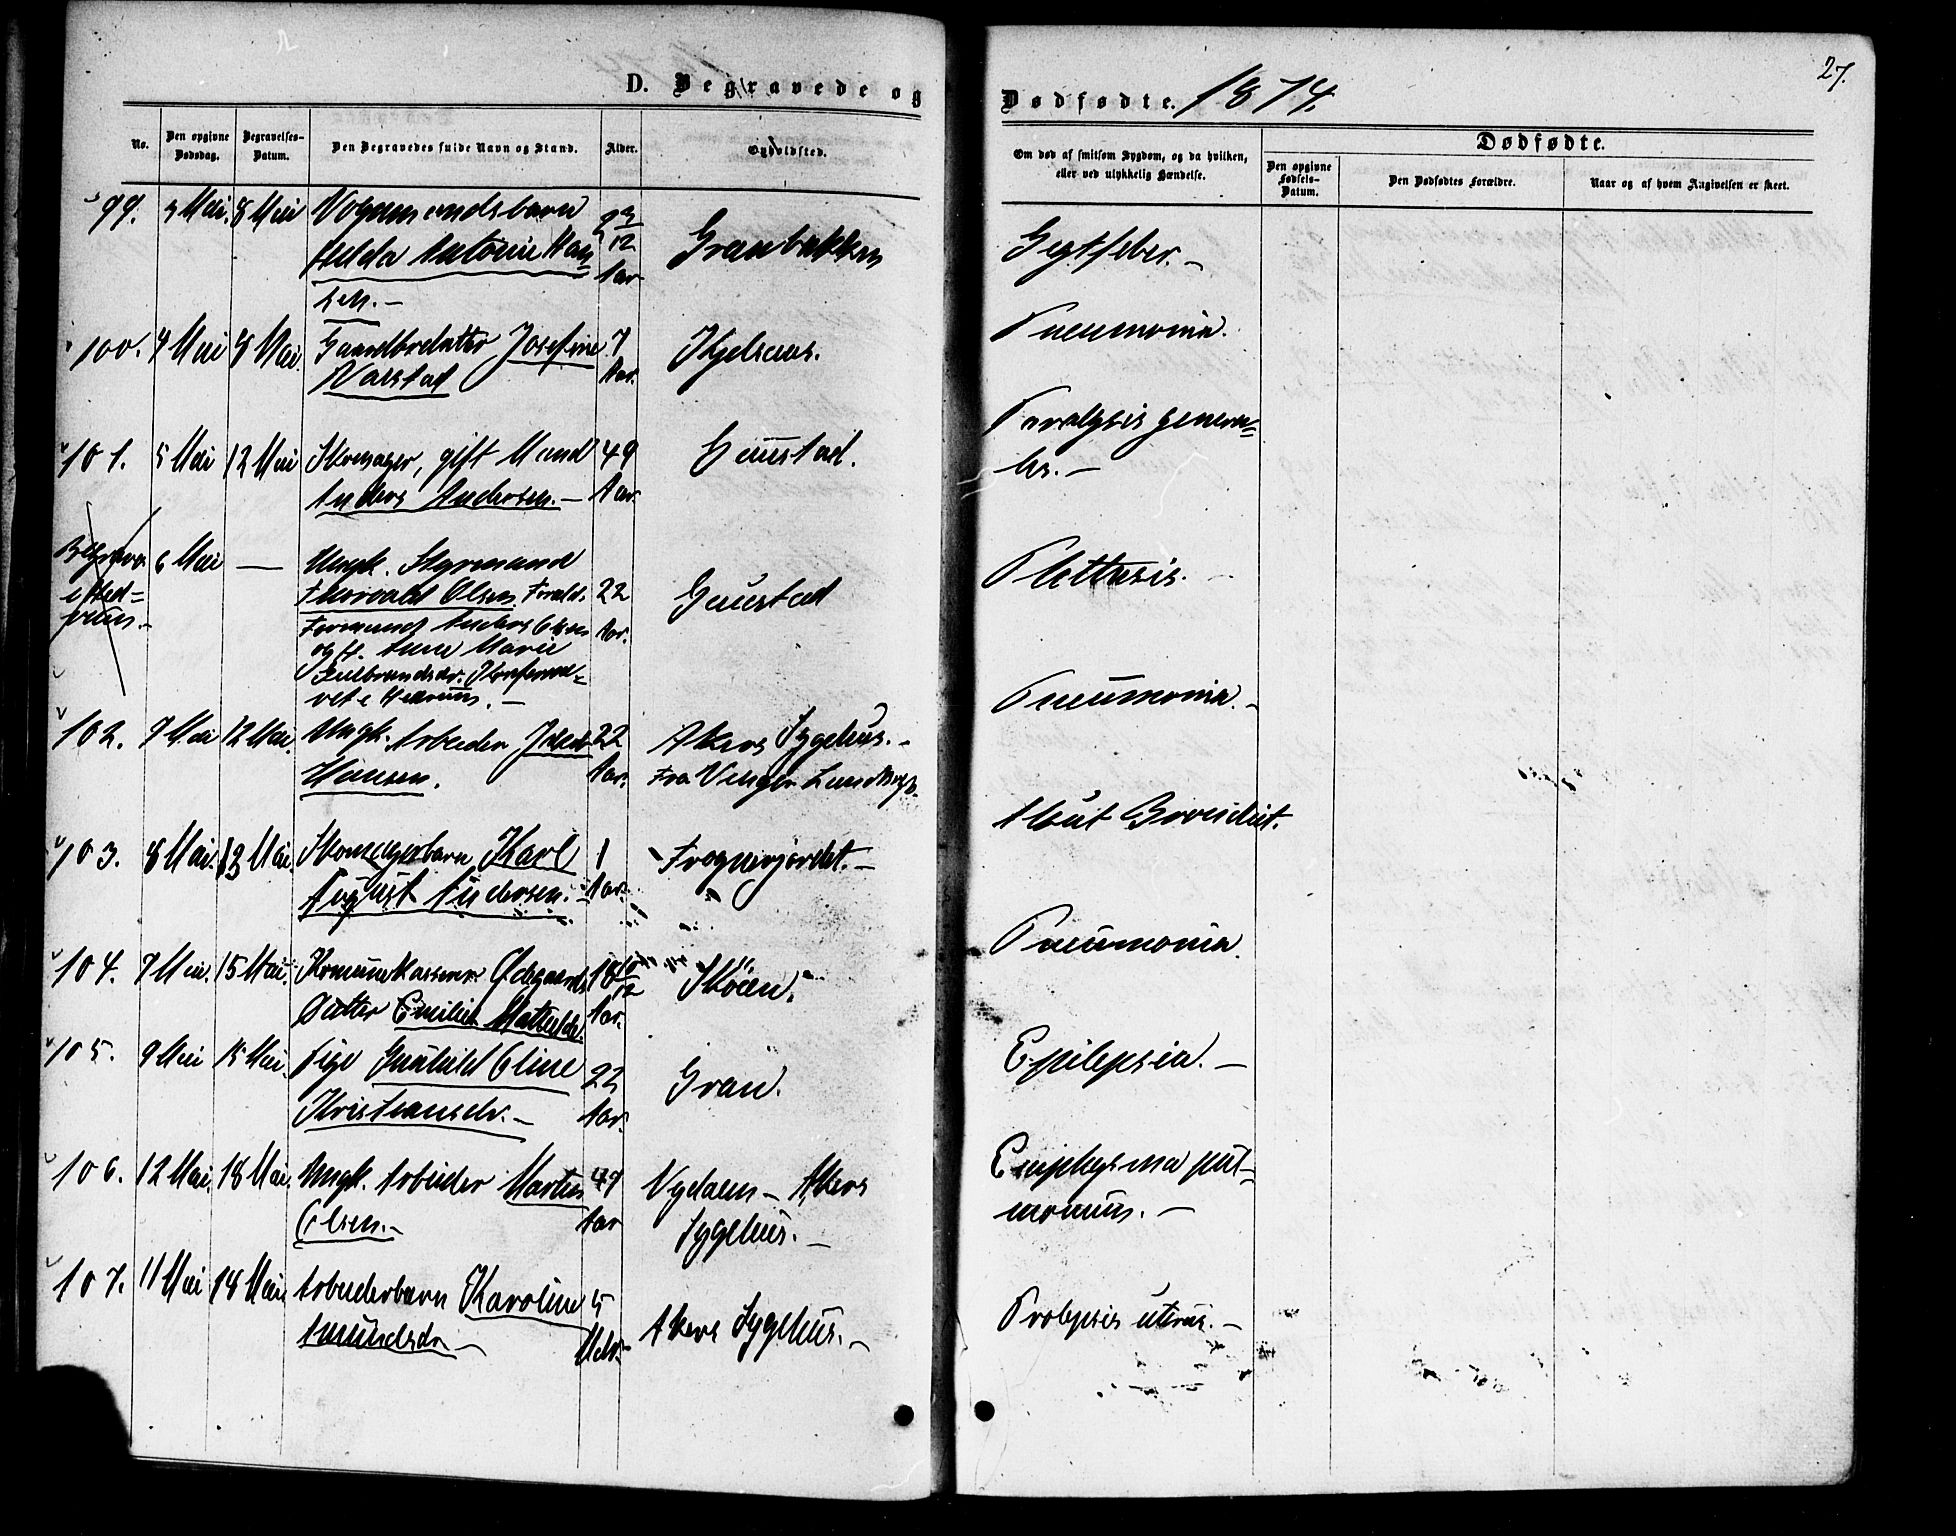 D. Begravede og
No.
Den opgivne Dødsdag.
Begravelses-Datum.
Den Begravedes fulde Navn og Stand.
Alder.
Opholdsted.
99. 3 Mai. 8 Mai Vognmandsbarn 2 3/12 Aar Granbakken
Hulda Antonie Han=
sen.-
100. 4 Mai 8 Mai. Gaardbrdatter Josefine 7 Aar. Kjelsaas.
Narstad
101. 5 Mai 12 Mai Skomager, gift Mand 49 Aar. Gaustad.
Anders Andersen.-
6 Mai — Ungk. Styrmand 22 Aar. Gaustad
Thorvald Olsen. Foræld:
Formand Anders Olsen
og H. Anne Marie
Gulbrandsdr.
102. 7 Mai 12 Mai. Ungk. Arbeider 22 Aar. Akers Sygehus.-
Hansen. Fra Vinger
103. 8 Mai. 13 Mai. Skomagerbarn Karl 1 Aar. Frognerjordet.-
August Andersen.-
104. 7 Mai. 15 Mai. Ødegaards 18 10/12 Aar. Skøien.
Datter Emilie Mathilde.
105. 9 Mai 15 Mai. Pige Gunhild Oline 22 Aar. Gran.
Kristiansdr.-
106. 12 Mai. 18 Mai. Ungk. Arbeider Martin 47 Aar Nydalen - Akers
Olsen.- Sygehus.-
107. 11 Mai 18 Mai Arbeiderbarn Karoline 5 Akers Sygehus.-
Amundsdr.-
Dødfødte. 1874.
27.
Om død af smitsom Sygdom, og da hvilken,
eller ved ulykkelig Hændelse.
Dødfødte.
Den opgivne Fødsels-Datum.
Den Dødfødtes Forældre.
Naar og af hvem Angivelsen er skeet.
Gigtfeber.-
Pneumonia.
Paralysis genera=
lis.-
Phthisis.-
Pneumonia.-
Akut Bronchit.
Pneumonia.
Epilepsia.-
Emphysma pul=
monum.-
Prolapsis uterus.-